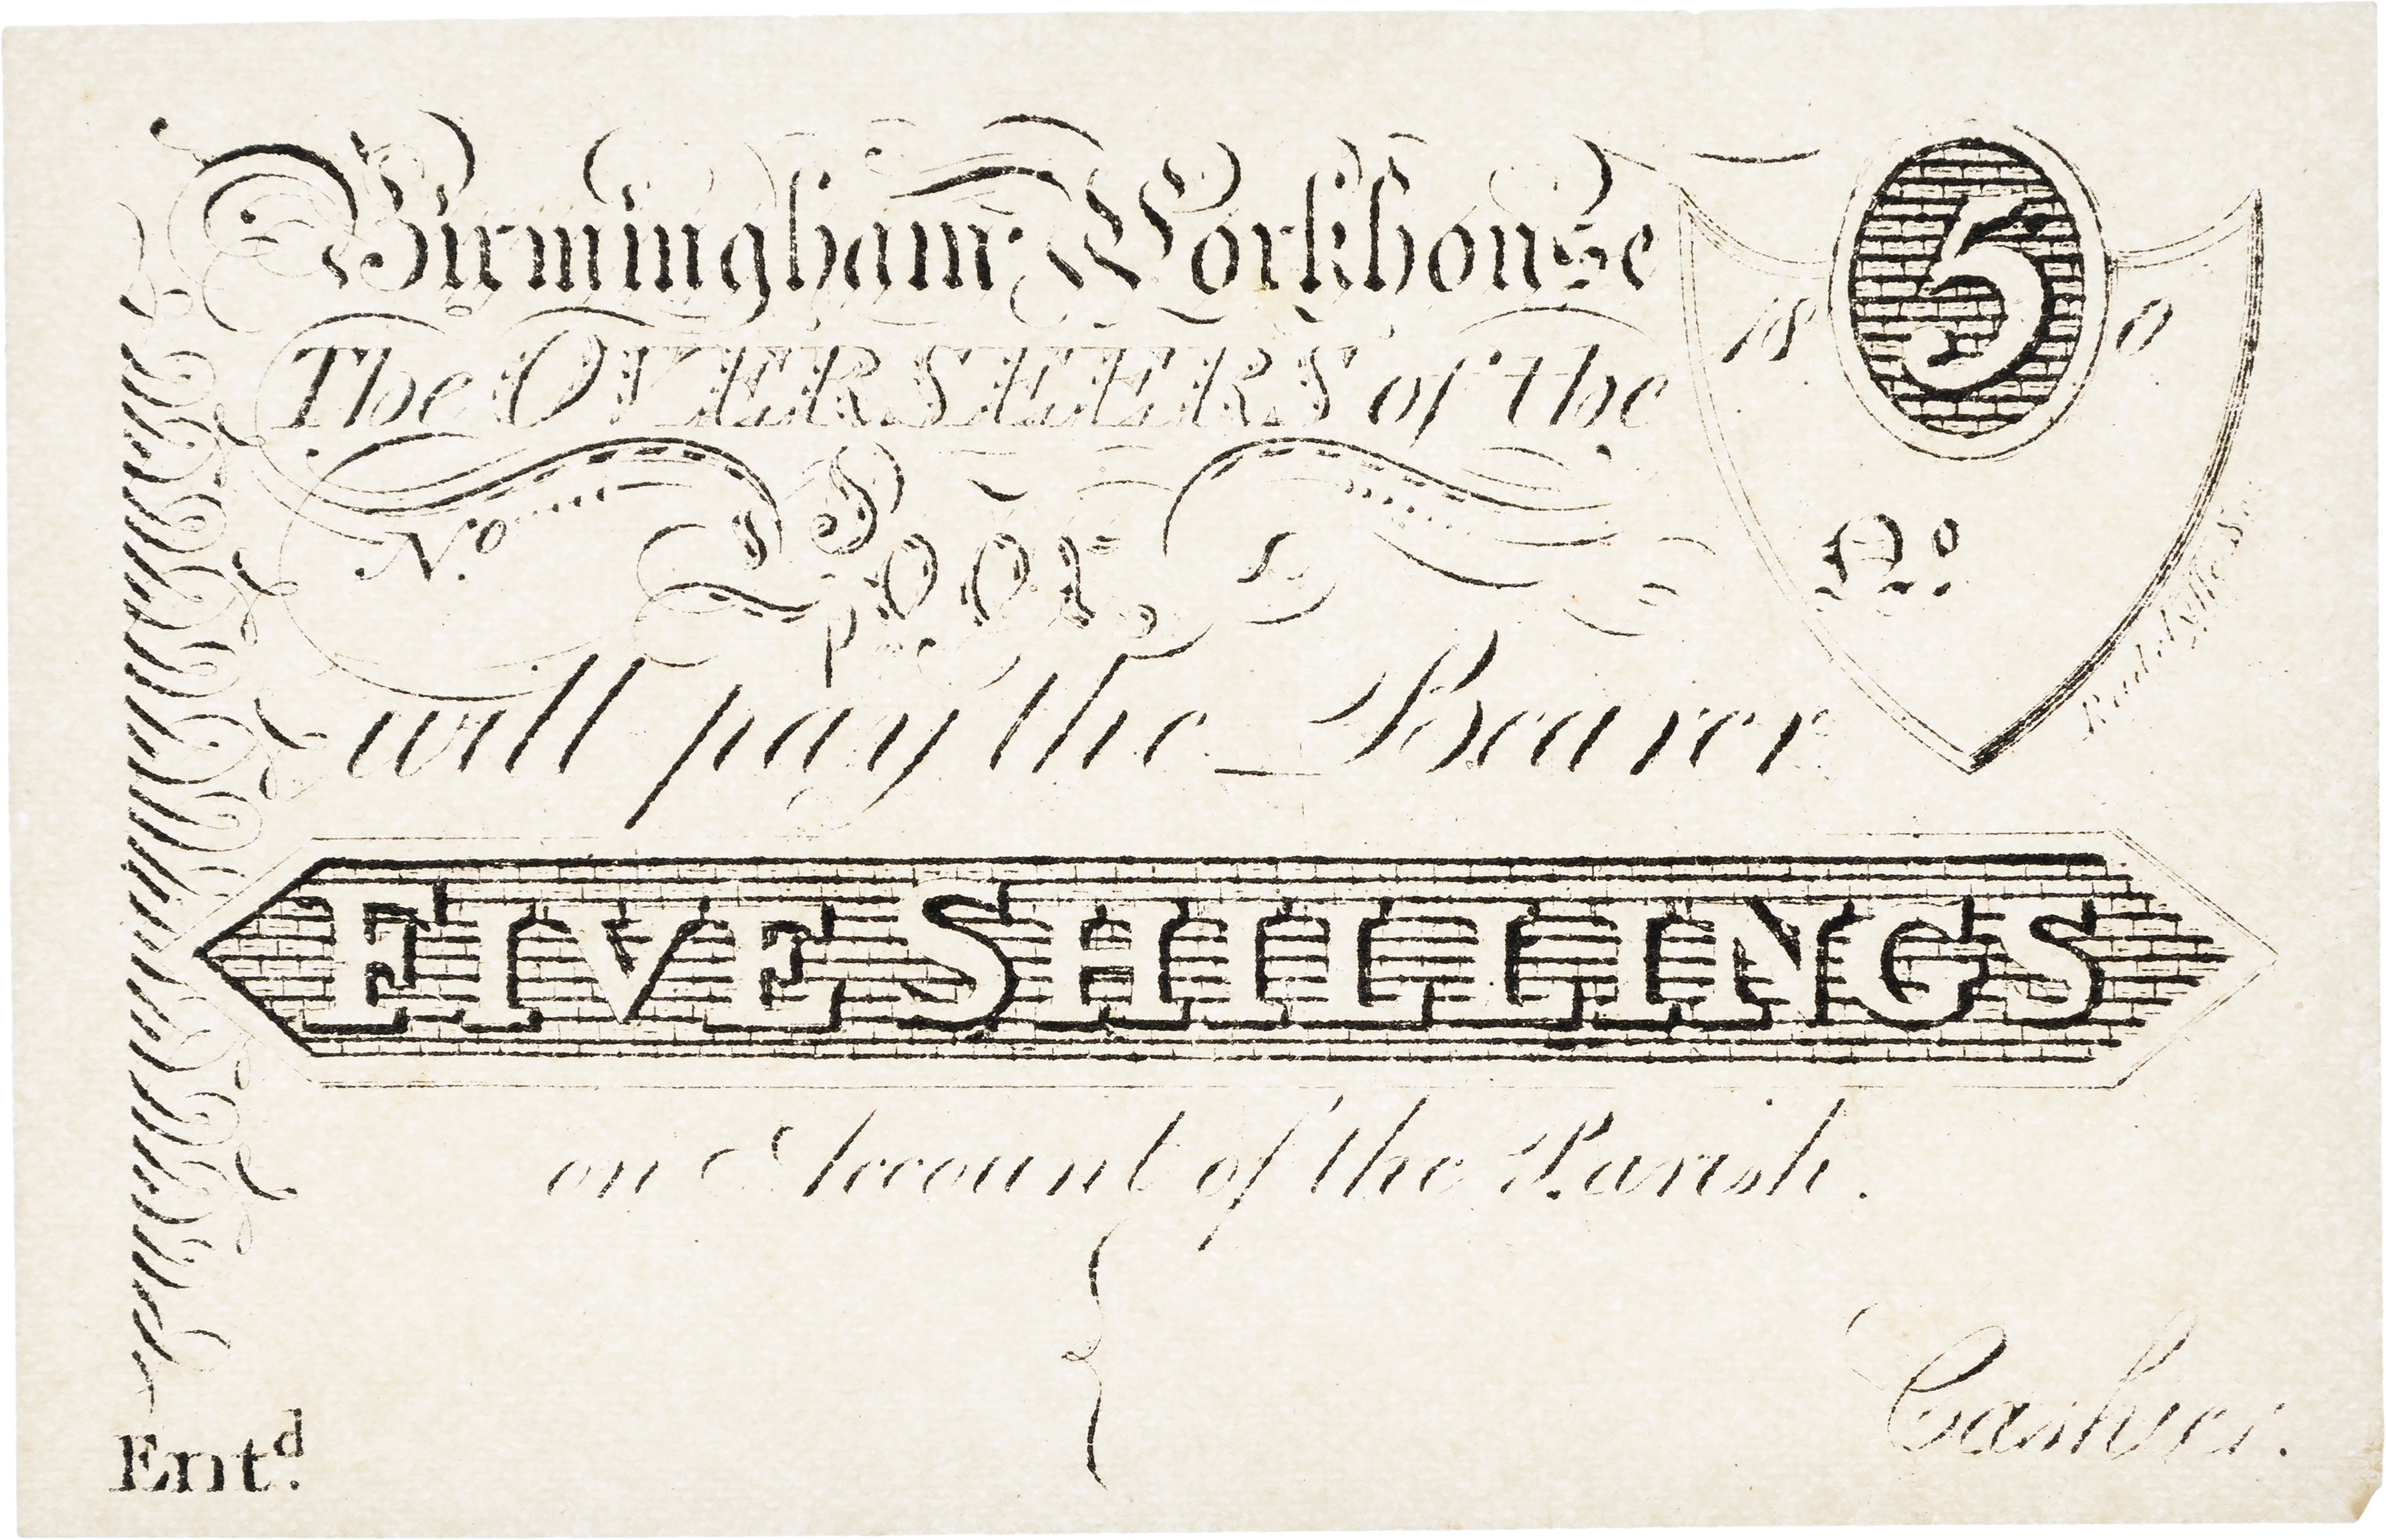 Birmingham Workhouse
5
The OVERSEERS of the
18 0
No
Poor,
No
will pay the Bearer
FIVE SHILLINGS
on Account of the Parish.
Entd.
Cashier.